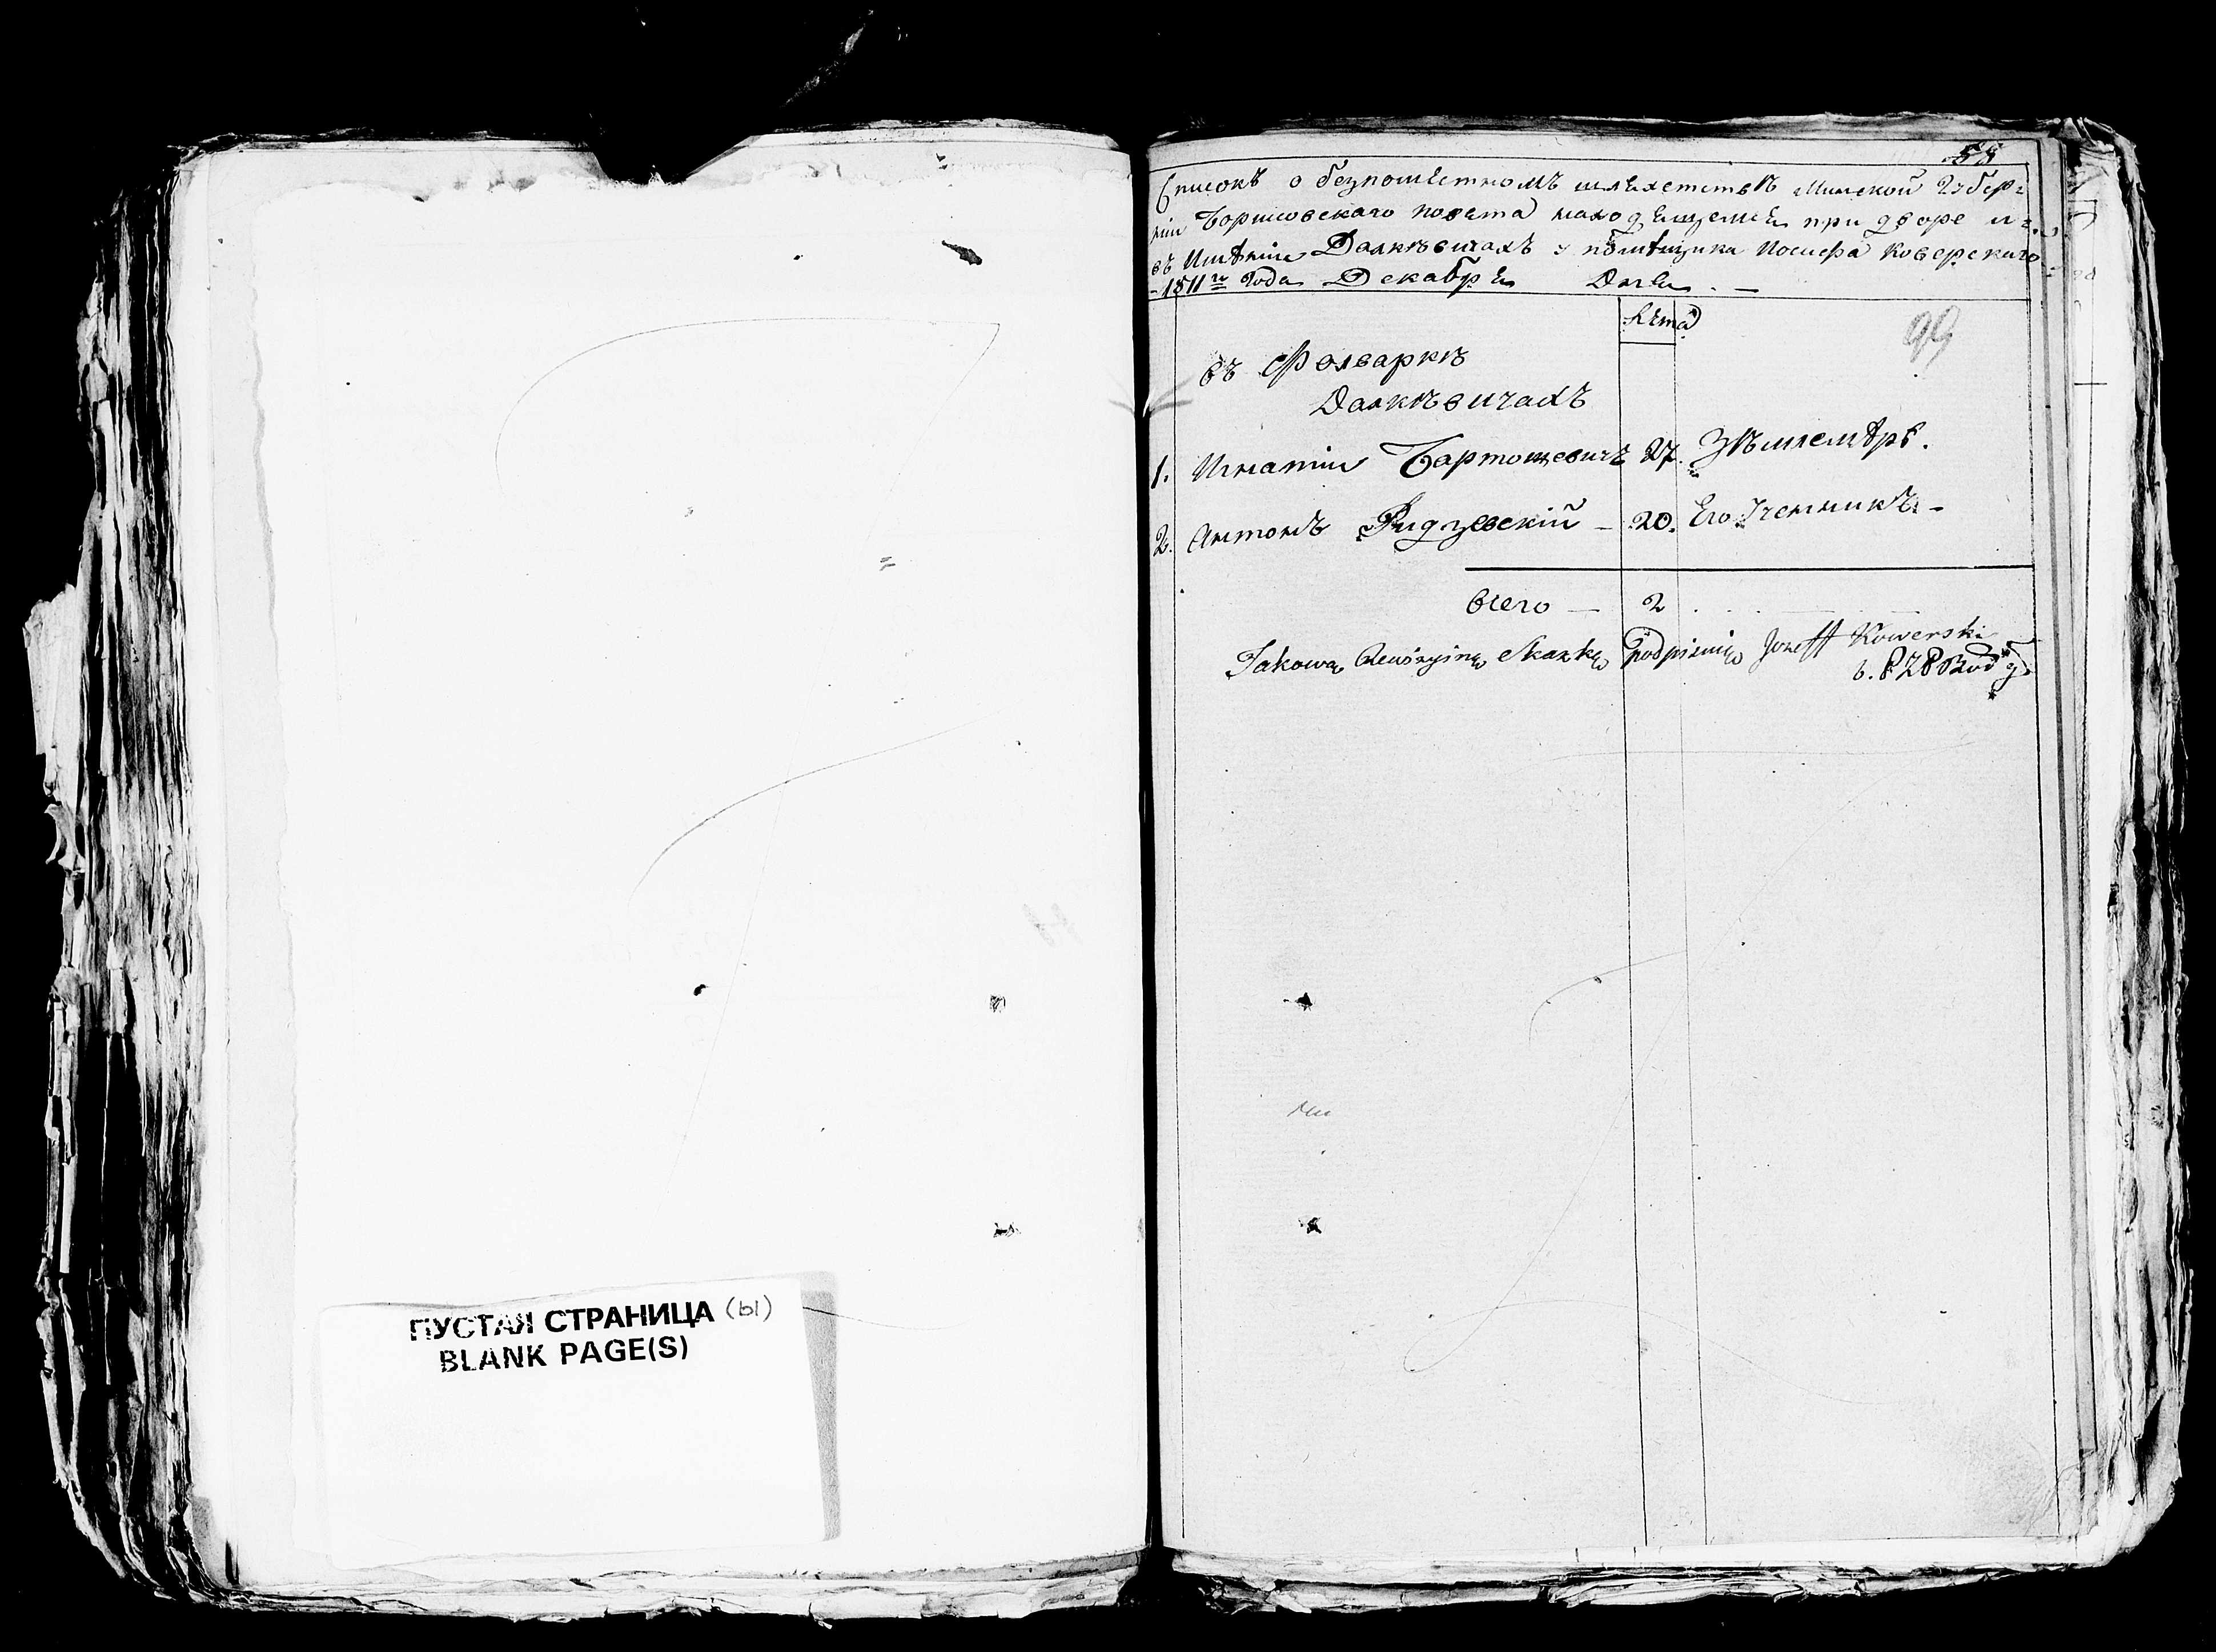 ПУСТАЯ СТРАНИЦА (ы)
BLANK PAGE(S)
58
Списокъ о безпоместномъ шляхетствѣ Минской Губер=
ніи Борисовскаго повета находящемся при дворе
въ Имѣніи Далкѣвичахъ у помѣщика Иосифа Коверскаго
1811го Года Декабря Дня. —
лета
99
въ Фолваркѣ
Далкѣвичахъ
1. Игнатіи Бартошевичъ 27. Зѣмлемѣръ.
2. Антонъ Ридзевскій — 20. Его Ученикъ —
всего — 2
Takową Rewizyiną Skazkę podpisuię Jozeff Kowerski
b.